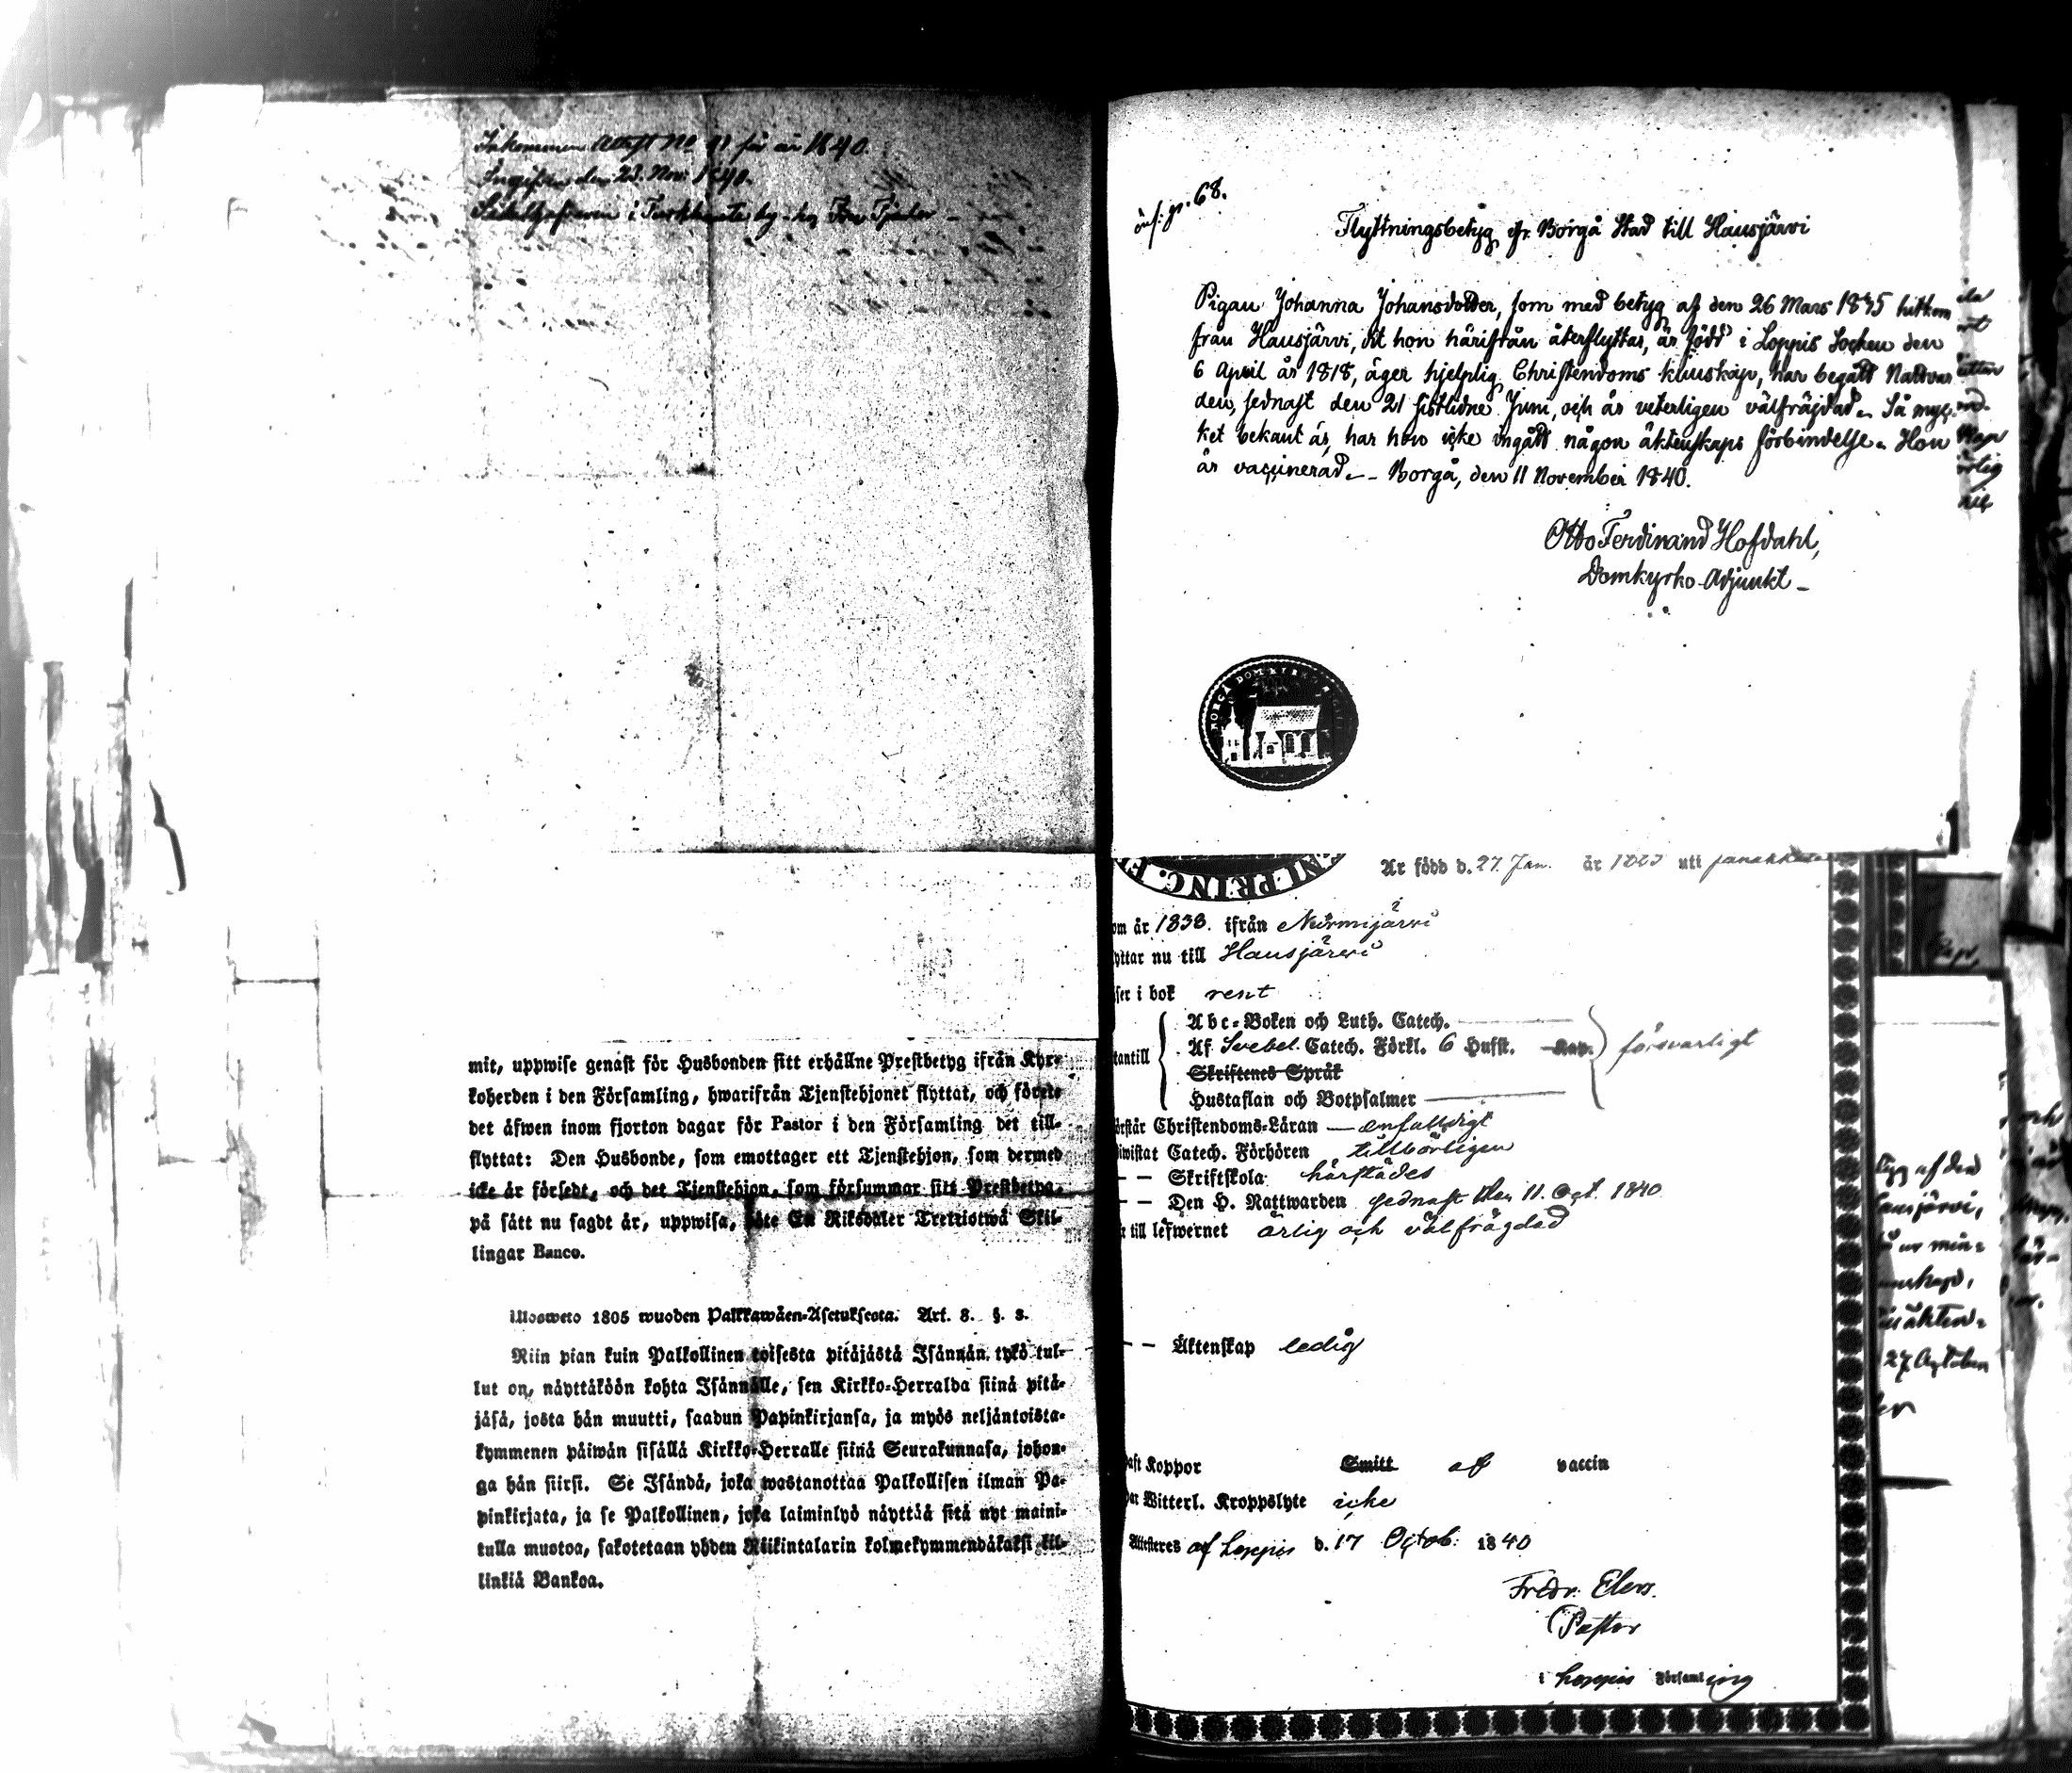 Inkommen Attest No 71 för år 1840.
Ingifven den 23. Nov. 1840.
i Turkhauta by hos
mit, uppwise genast för Husbonden sitt erhållne Prestbetyg ifrån Kyr-
koherden i den Församling, hwarifrån Tjenstehjonet flyttat, och förete
det åfwen inom fjorton dagar för Pastor i den Församling det till-
flyttat: Den Husbonde, som emottager ett Tjenstehjon, som dermed
icke är försedt, och det Tjenstehjon, som försummar sitt Prestbetyg,
på sätt nu sagdt är, uppwisa, böte En Riksdaler Trettiotwå Skil-
lingar Banco.
Ulosweto 1805 wuoden Palkkawäen-Asetuksesta. Art. 8. §. 3.
Niin pian kuin Palkollinen toisesta pitäjästä Isännän tykö tul-
lut on, näyttäköön kohta Isännälle, sen Kirkko-Herralda siinä pitä-
jäsä, josta hän muutti, saadun Papinkirjansa, ja myös neljäntoista-
kymmenen päiwän sisällä Kirkko-Herralle siinä Seurakunnasa, johon-
ga hän siirsi. Se Isändä, joka wastanottaa Palkollisen ilman Pa-
pinkirjata, ja se Palkollinen, joka laiminlyö näyttää sitä nyt maini-
tulla muotoa, sakotetaan yhden Riikintalarin kolmekymmendäkaksi kil-
linkiä Bankoa.
inf. p. 68.
Flyttningsbetyg fr. Borgå Stad till Hausjärvi
Pigan Johanna Johansdotter, som med betyg af den 26 Mars 1835 hitkom
från Hausjärvi, dit hon härifrån återflyttar, är född i Loppis Socken den
6 April år 1818, äger hjelplig Christendoms kunskap, har begått Nattvar
den, sednast den 21 sistlidne Juni, och är veterligen välfräjdad. Så myc-
ket bekant är, har hon icke ingått någon äktenskaps förbindelse. Hon
är vaccinerad. - Borgå, den 11 November 1840.
Otto Ferdinand Hofdahl,
Domkyrko Adjunkt
NI PRINC. F
Är född d. 27 Jan. år 1823 uti Janakkala
om år 1838. ifrån Nurmijärvi
yttar nu till Hausjärvi
äser i bok rent
Abc-Boken och Luth. Catech.
tantill Af Svebel. Catech. Förkl. 6 Hufst. försvarligt
Skriftenes Språk
Hustaflan och Botpsalmer
örstår Christendoms-Läran enfaldigt
iwistat Catech. Förhören tillbörligen
- - Skriftskola härstädes
- - Den H. Nattwarden sednast den 11. Oct. 1840
r till lefwernet ärlig och välfrägdad
- - Äktenskap ledig
aft Koppor Smitt af vaccin
ar Witterl. Kroppslyte icke
Attesteres af Loppis d. 17 Octob. 1840
Fredr. Elers.
Pastor
i Loppis Församling
tyg af den
Hausjärvi,
27 October